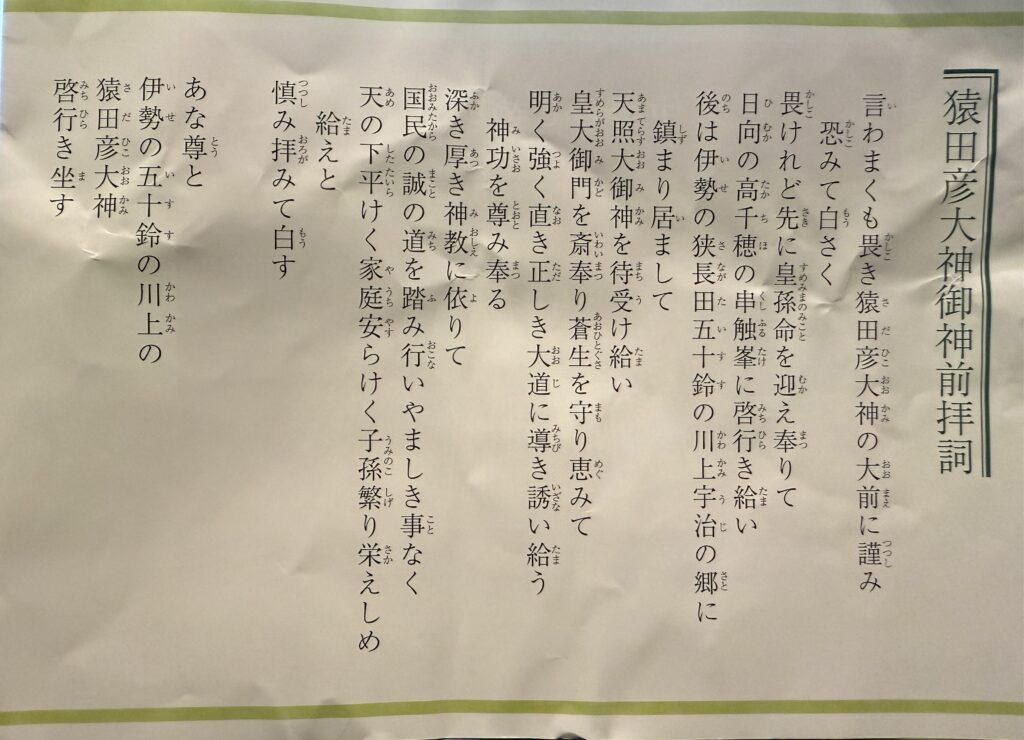 猿田彦大神御神前拝詞
言わまくも畏き猿田彦大神の大前に謹み
恐みて白さく
畏けれど先に皇孫命を迎え奉りて
日向の高千穂の串触峯に啓行き給い
後は伊勢の狭長田五十鈴の川上宇治の郷に
鎮まり居まして
天照大御神を待受け給い
皇大御門を斎奉り蒼生を守り恵みて
明く強く直き正しき大道に導き誘い給う
神功を尊み奉る
深き厚き神教に依りて
国民の誠の道を踏み行いやましき事なく
天の下平けく家庭安らけく子孫繁り栄えしめ
給えと
慎み拝みて白す
あな尊と
伊勢の五十鈴の川上の
猿田彦大神
啓行き坐す